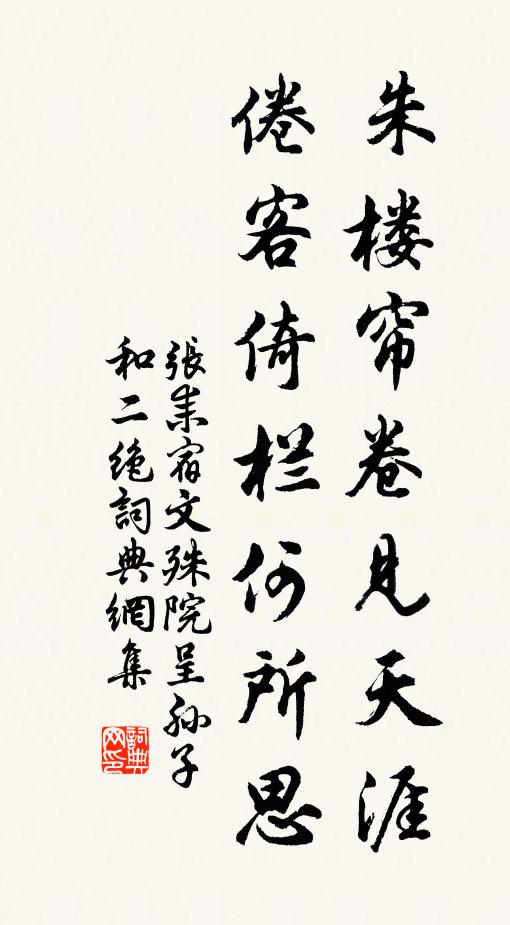 朱楼帘卷見天涯
倦客倚栏何所思
張耒宿文殊院呈孙子
和二绝詞典網集
詞典网印